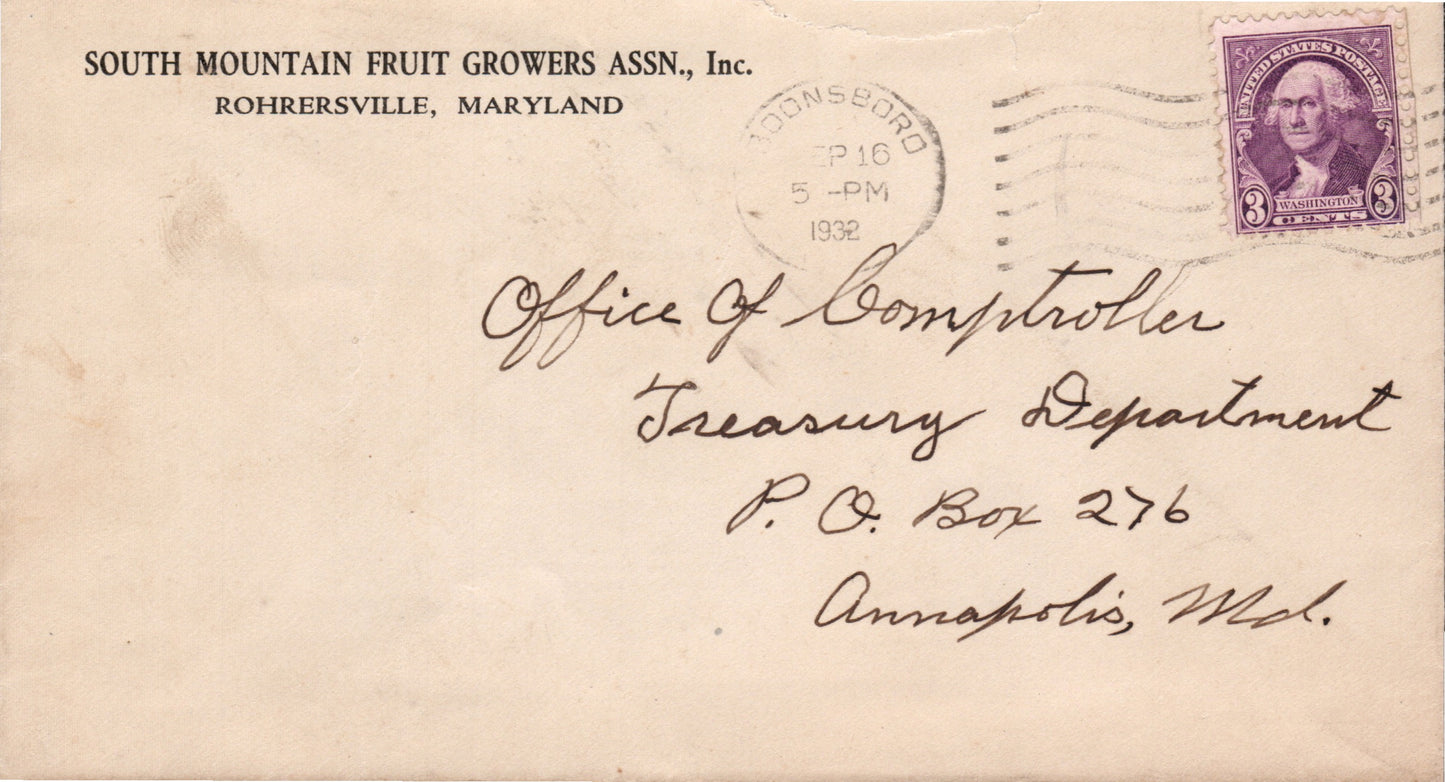 SOUTH MOUNTAIN FRUIT GROWERS ASSN., Inc.
ROHRERSVILLE, MARYLAND
OONSBORO
EP 16
5 -PM
1932
UNITED STATES POSTAGE
WASHINGTON
3 CENTS 3
Office Of Comptroller
Treasury Department
P. O. Box 276
Annapolis, Md.